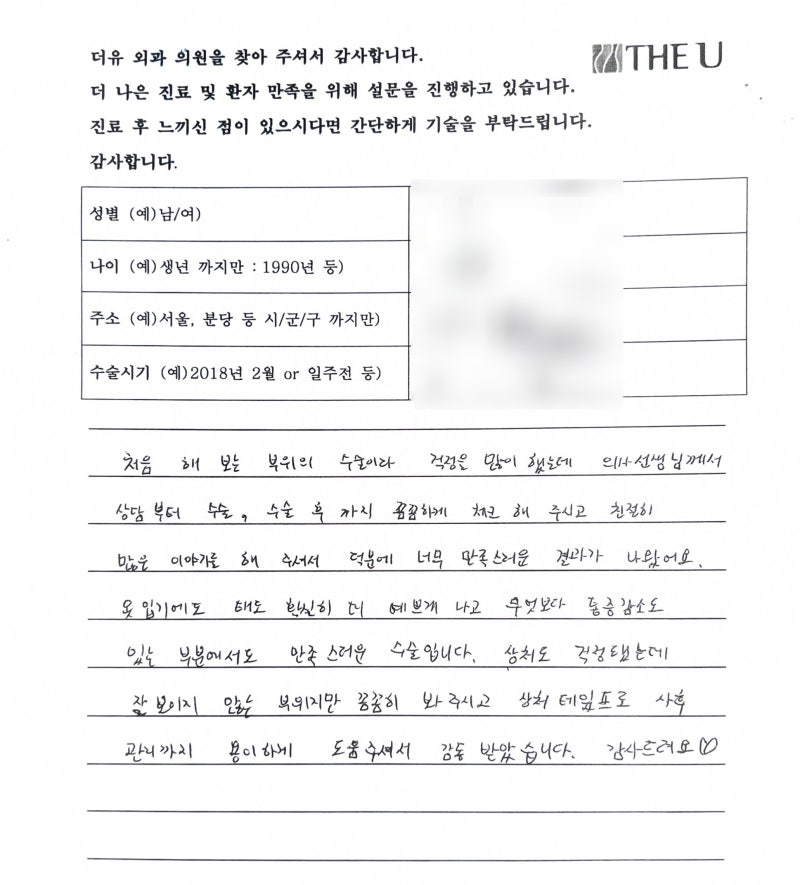 더유 외과 의원을 찾아 주셔서 감사합니다.
THE U
더 나은 진료 및 환자 만족을 위해 설문을 진행하고 있습니다.
진료 후 느끼신 점이 있으시다면 간단하게 기술을 부탁드립니다.
감사합니다.
성별 (예)남/여)
나이 (예)생년 까지만 : 1990년 등)
주소 (예)서울, 분당 등 시/군/구 까지만)
수술시기 (예)2018년 2월 or 일주전 등)
처음 해 보는 부위의 수술이라 걱정을 많이 했는데 의사선생님께서
상담부터 수술, 수술 후 까지 꼼꼼하게 체크 해 주시고 친절히
많은 이야기를 해 주셔서 덕분에 너무 만족스러운 결과가 나왔어요.
옷 입기에도 태도 확실히 더 예쁘게 나고 무엇보다 통증감소도
있는 부분에서도 만족스러운 수술입니다. 상처도 걱정됐는데
잘 보이지 않는 부위지만 꼼꼼히 봐 주시고 상처 테잎프로 사후
관리까지 용이하게 도움주셔서 감동 받았습니다. 감사드려요♡